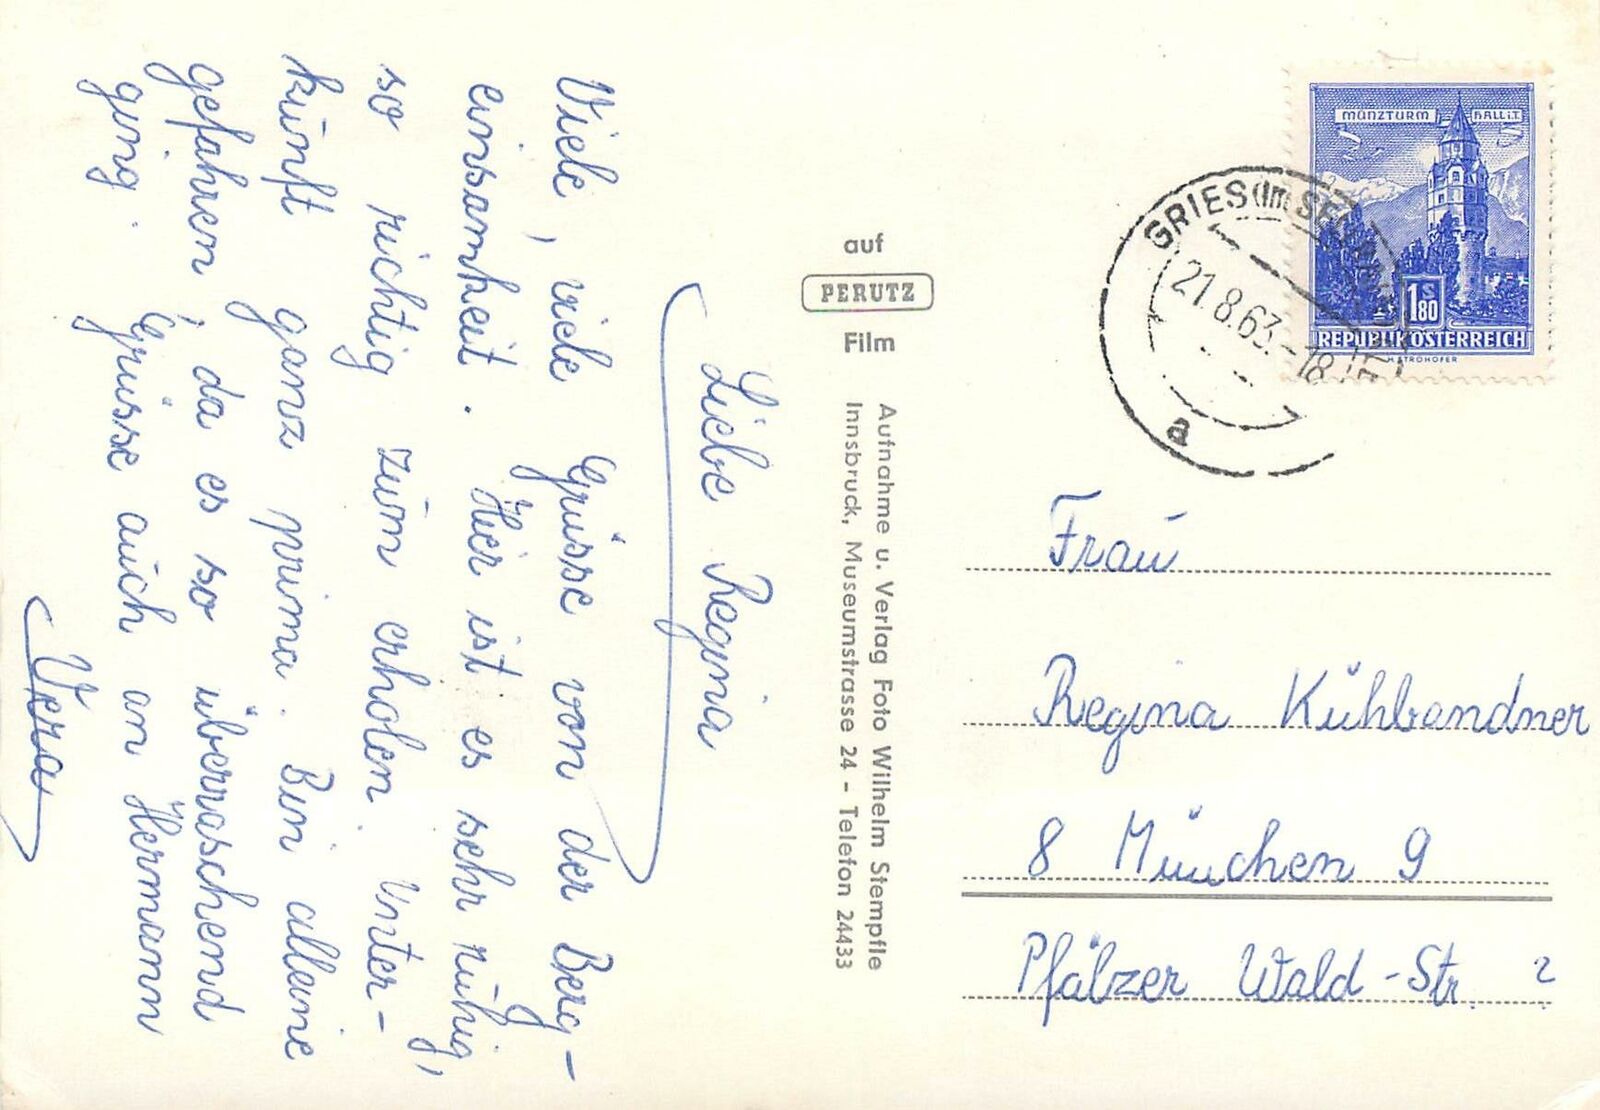 Liebe Regina
Viele, viele Grüsse von der Berg-
einsamkeit. Hier ist es sehr ruhig,
so richtig zum erholen. Unter-
kunft ganz prima. Bin alleine
gefahren, da es so überraschend
ging. Grüsse auch an Hermann
Vera
auf
PERUTZ
Film
Aufnahme u. Verlag Foto Wilhelm Stempfle
Innsbruck, Museumstrasse 24 - Telefon 24433
MÜNZTURM HALL i.T.
S
1.80
REPUBLIK ÖSTERREICH
H. STROHOFER
GRIES (Im
21.8.63.-18
a
Frau
Regina Kühbandner
8 München 9
Pfälzer Wald-Str. 2